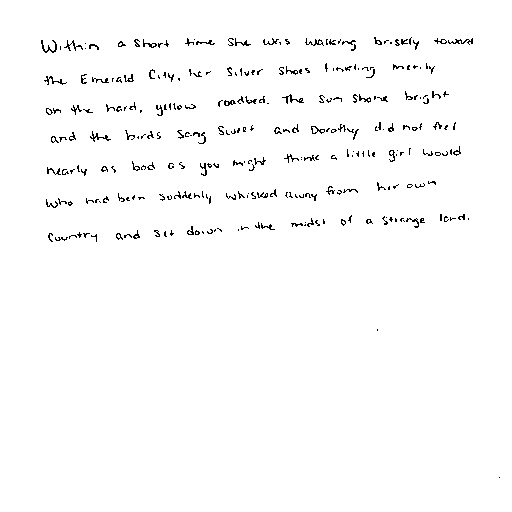 Within a short time she was walking briskly toward
the Emerald City, her Silver Shoes tinkling merrily
on the hard, yellow roadbed. The sun shone bright
and the birds sang sweet and Dorothy did not feel
nearly as bad as you might think a little girl would
who had been suddenly whisked away from her own
country and set down in the midst of a strange land.